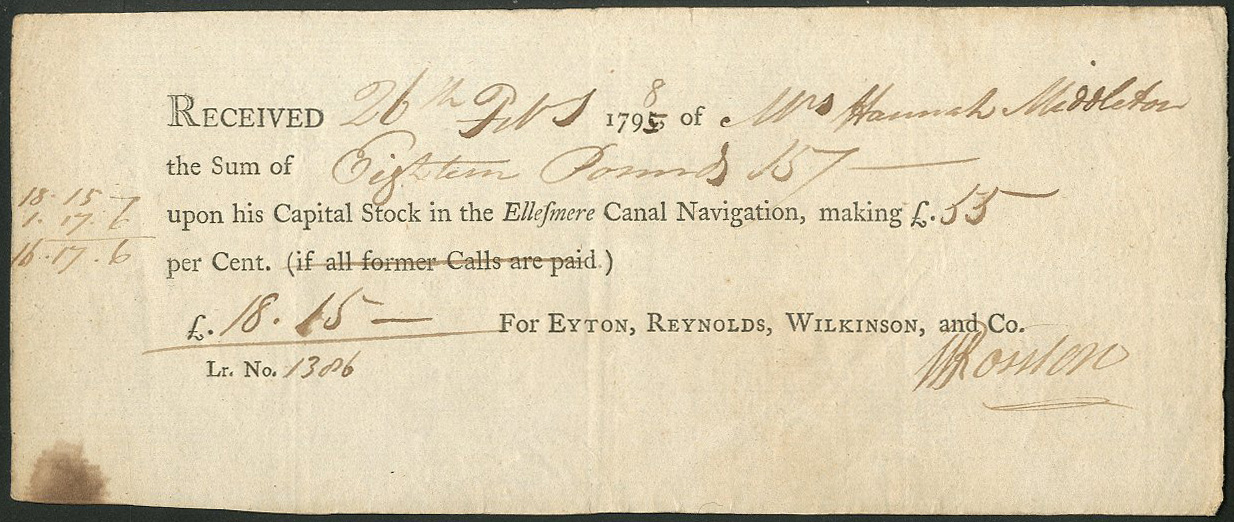 RECEIVED 26th Feb 1798 of Mrs Hannah Middleton
the Sum of Eighteen Pounds 15/—
18.15.–
upon his Capital Stock in the Ellesmere Canal Navigation, making £.55—
1.17.6
16.17.6
per Cent. (if all former Calls are paid.)
£.18.15— For EYTON, REYNOLDS, WILKINSON, and Co.
Lr. No. 1386